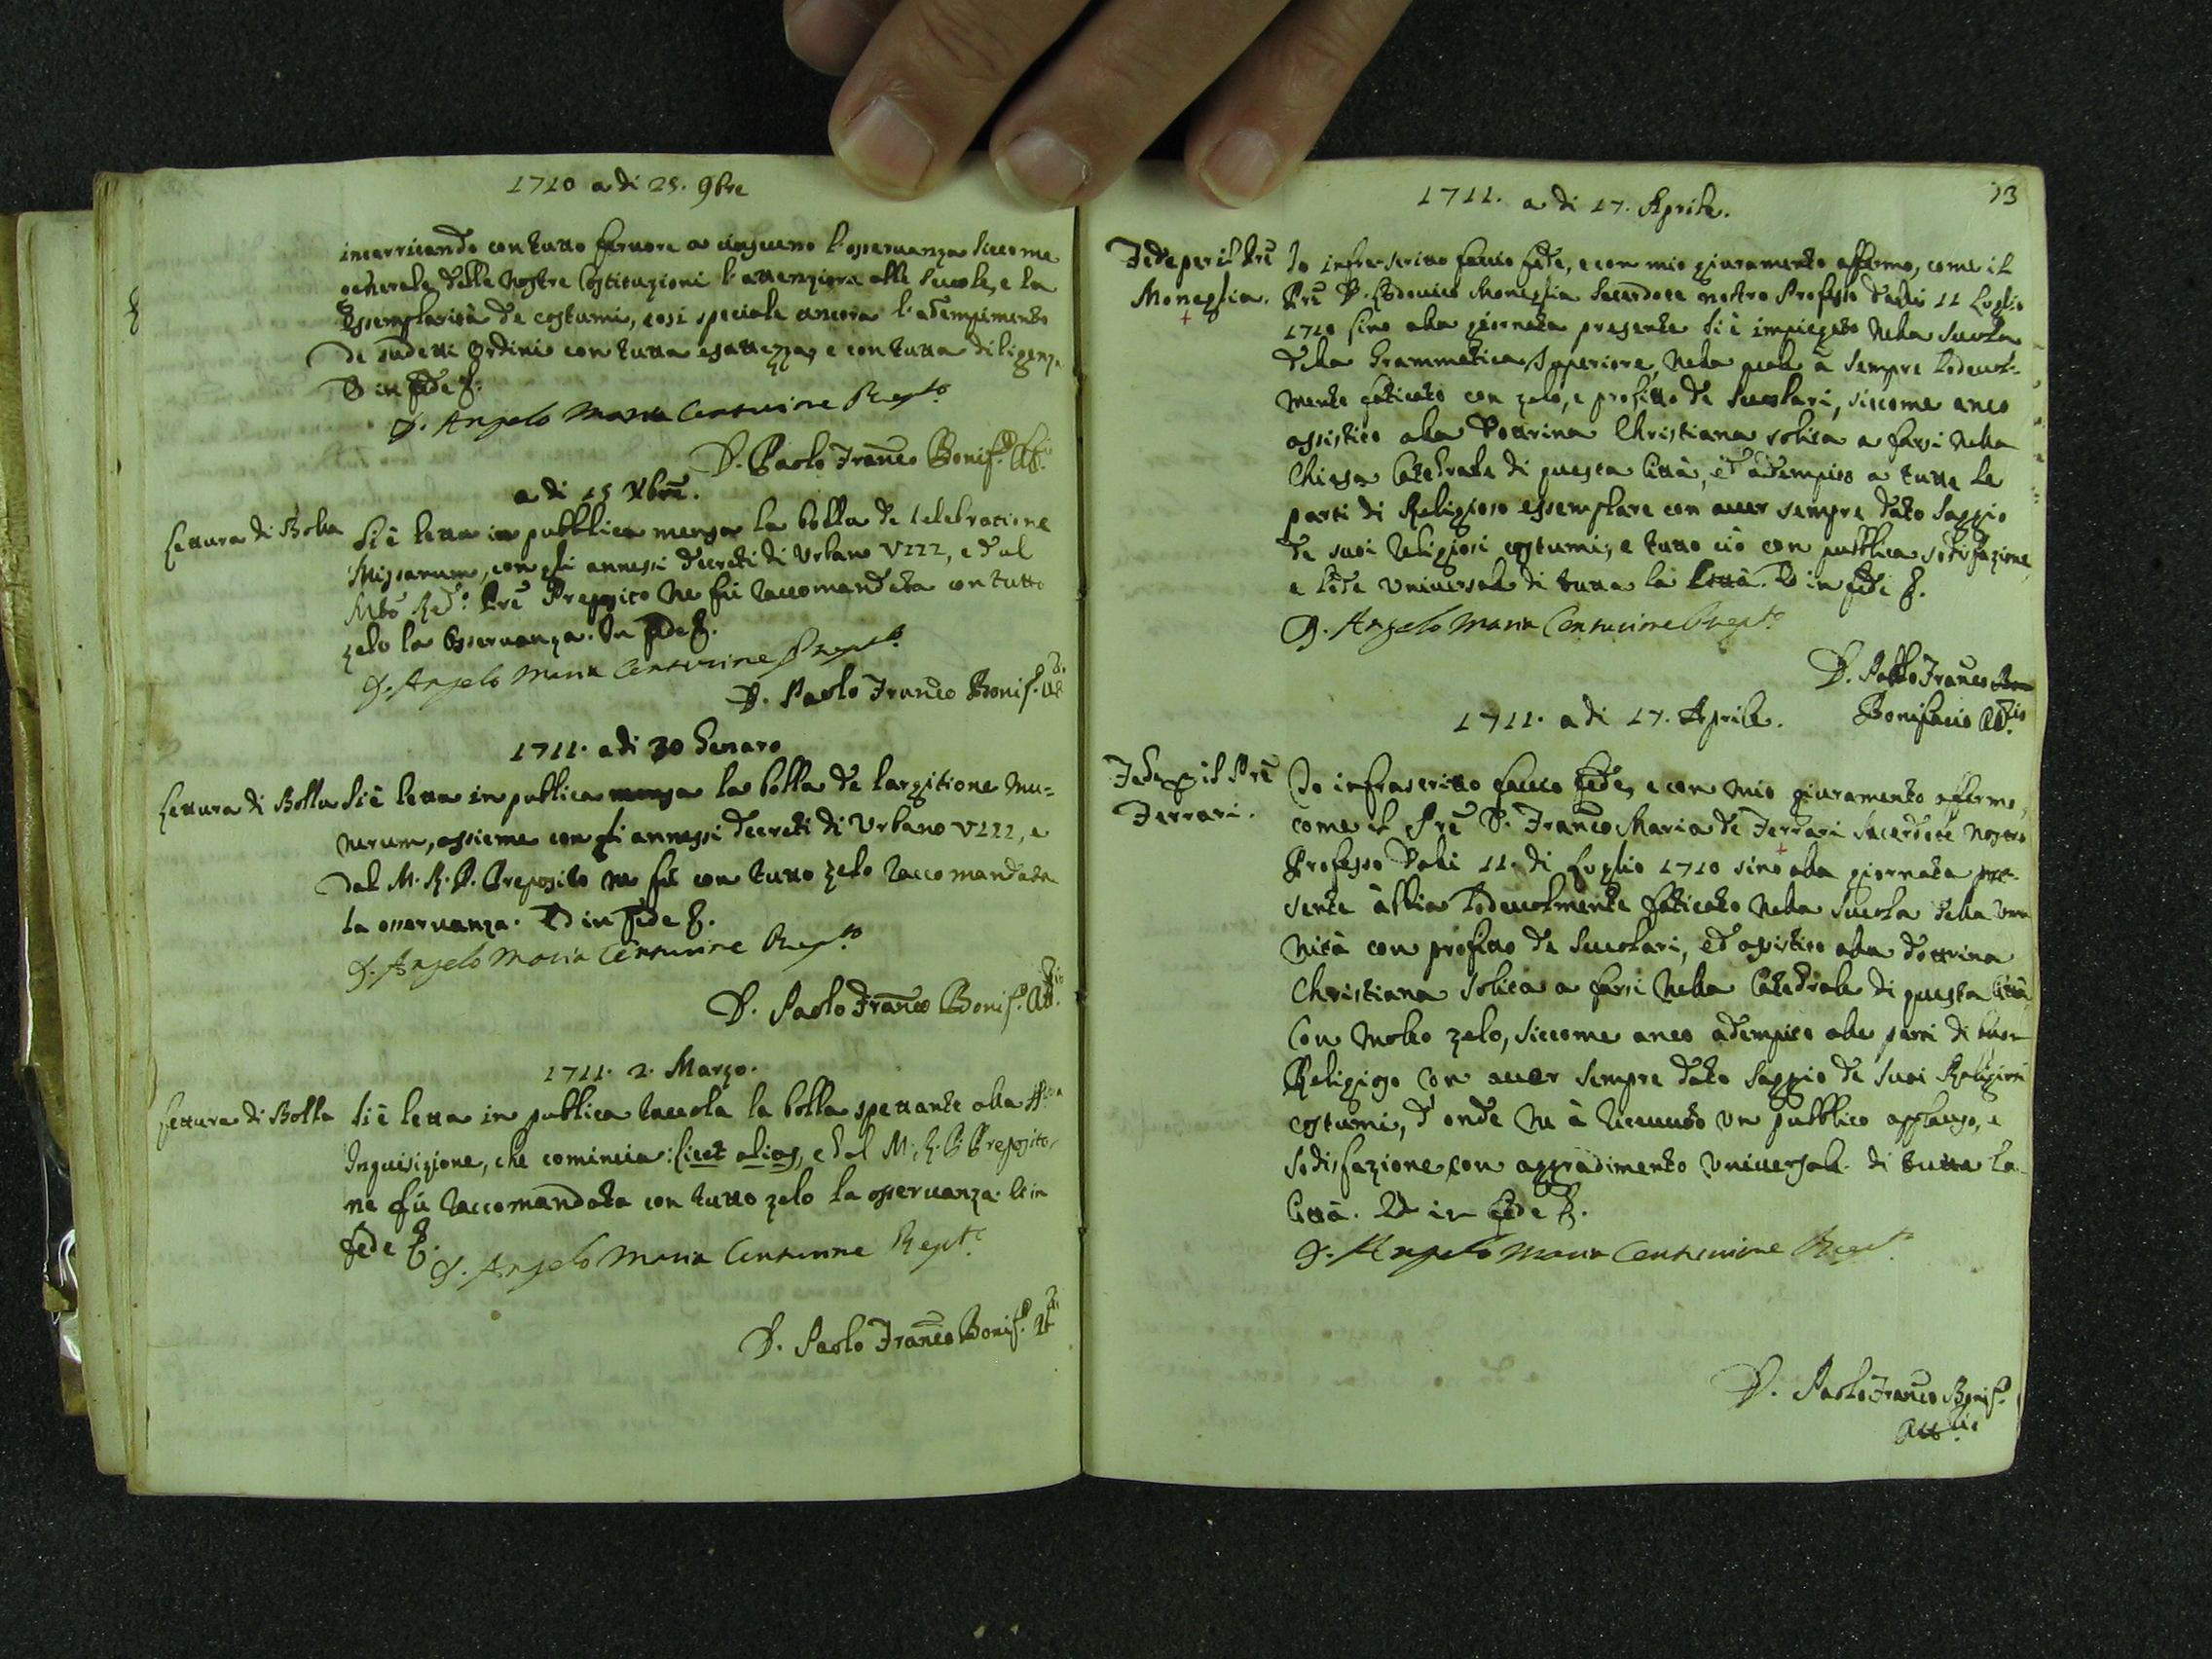 1710 a di 25. 9bre
incarricando con tutto fervore a ciascuno l'osservanza siccome
generale delle nostre Costituzioni l'attenzione alle scuole, e la
Essemplarità de costumi, così speciale ancora l'adempimento
de sudetti Ordini con tutta esattezza, e con tutta diligenza
Et in fede &.
D. Angelo Maria Centurione Prep.to
D. Paolo Franco Bonif.o Att.
a di 15 Xbre.
Lettura di Bolla
Si è letta in pubblica mensa la bolla de celebratione
Missarum, con gli annessi decreti di Urbano VIII, e dal
Mto Red.o Pre Preposito ne fù raccomandata con tutto
zelo la osservanza. In fede &.
D. Angelo Maria Centurione Prep.to
D. Paolo Franco Bonif.o Att.
1711. a di 30 Genaro
Lettura di Bolla
Si è letta in publica mensa la bolla de largitione mu=
nerum, assieme con gli annessi decreti di Urbano VIII, e
dal M. R. P. Preposito ne fù con tutto zelo raccomandata
la osservanza. Et in fede &.
D. Angelo Maria Centurione Prep.to
D. Paolo Franco Bonif.o Att.
1711. 2. Marzo.
Lettura di Bolla
Si è letta in publica tavola la bolla spettante alla
Inquisizione, che comincia: licet alias, e dal M. R. P. Preposito
ne fù raccomandata con tutto zelo la osservanza. Et in
fede &.
D. Angelo Maria Centurione Prep.to
D. Paolo Franco Bonif.o Att.
13
1711. a di 17. Aprile.
Fede per il Pre
Moneglia.
Io infrascritto faccio fede, e con mio giuramento affermo, come il
Pre D. Lodovico Moneglia Sacerdote nostro Professo dalli 11 Luglio
1710 sino alla giornata presente si è impiegato nella scuola
della Grammatica superiore, nella quale à sempre lodevol-
mente faticato con zelo, e profitto de scuolari, siccome anco
assistito alla Dottrina Christiana solita a farsi nella
Chiesa Catedrale di questa Città, ed adempito a tutte le
parti di Religioso essemplare con aver sempre dato saggio
de suoi religiosi costumi, e tutto ciò con pubblica sodisfazione,
e lode universale di tutta la Città. Et in fede &.
D. Angelo Maria Centurione Prep.to
D. Paolo Franco
Bonifacio Att.rio
1711. a di 17. Aprile.
Fede p il Pre
Ferrari.
Io infrascritto faccio fede, e con mio giuramento affermo,
come il Pre D. Franco Maria de Ferrari Sacerdote nostro
Professo dalli 11. di Luglio 1710 sino alla giornata pre-
sente àbbia lodevolmente faticato nella scuola della uma
nità con profitto de scuolari, ed assistito alla dottrina
Christiana solita a farsi nella Catedrale di questa Città
con molto zelo, siccome anco adempito alle parti di buon
Religioso con aver sempre dato saggio de suoi Religiosi
costumi, d'onde ne à ricevuto un pubblico applauso, e
sodisfazione, con aggradimento universale di tutta la
Città. Et in fede &.
D. Angelo Maria Centurione Prep.to
D. Paolo Franco Bonif.o
Att.rio